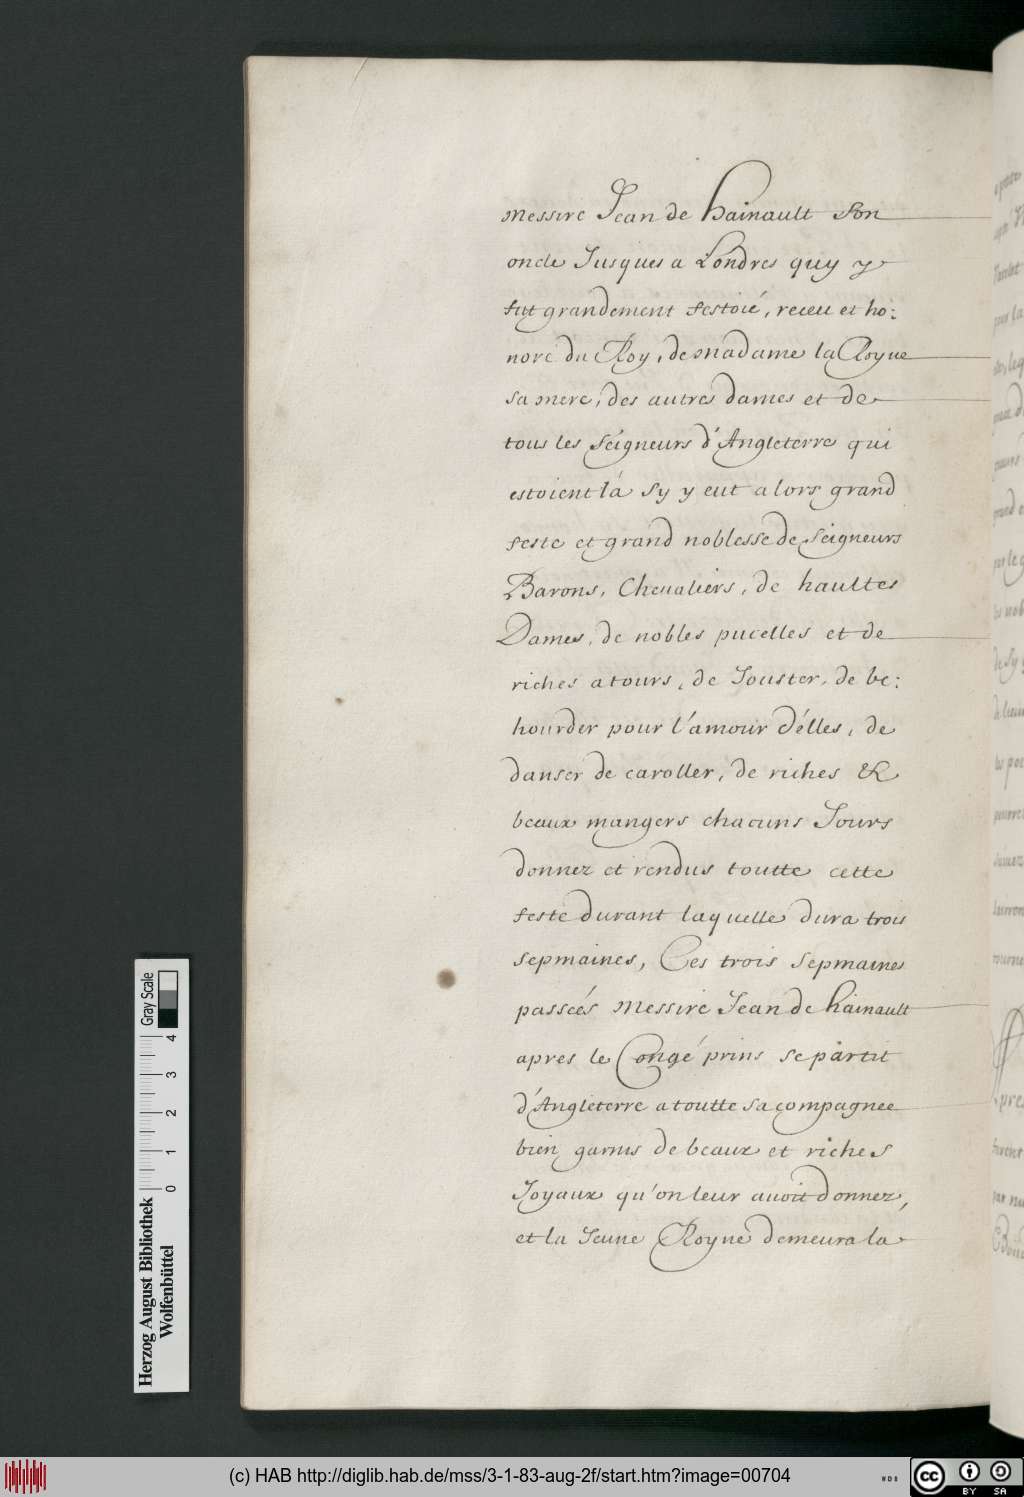 Messire Jean de hainault son
oncle Jusques a Londres quy y
fut grandement festoié, receu et ho:
noré du Roy, de Madame la Royne
sa mere, des autres dames et de
tous les seigneurs d'Angleterre qui
estoient là sy y eut alors grand
feste et grand noblesse de Seigneurs
Barons, Chevaliers, de haultes
Dames, de nobles pucelles et de
riches atours, de Jouster, de be:
hourder pour l'amour d'élles, de
danser de caroller, de riches &
beaux mangers chacuns Jours
donnez et rendus toutte cette
feste durant laquelle dura trois
sepmaines, Ces trois sepmaines
passeés Messire Jean de hainault
apres le Congé prins se partit
d'Angleterre a toutte sa compagnee
bien garnis de beaux et riches
Joyaux qu'on leur avoit donnez,
et la Jeune Royne demeura la
Herzog August Bibliothek
Wolfenbüttel
0 1 2 3 4
Gray Scale
(c) HAB http://diglib.hab.de/mss/3-1-83-aug-2f/start.htm?image=00704
WDB
cc
BY SA